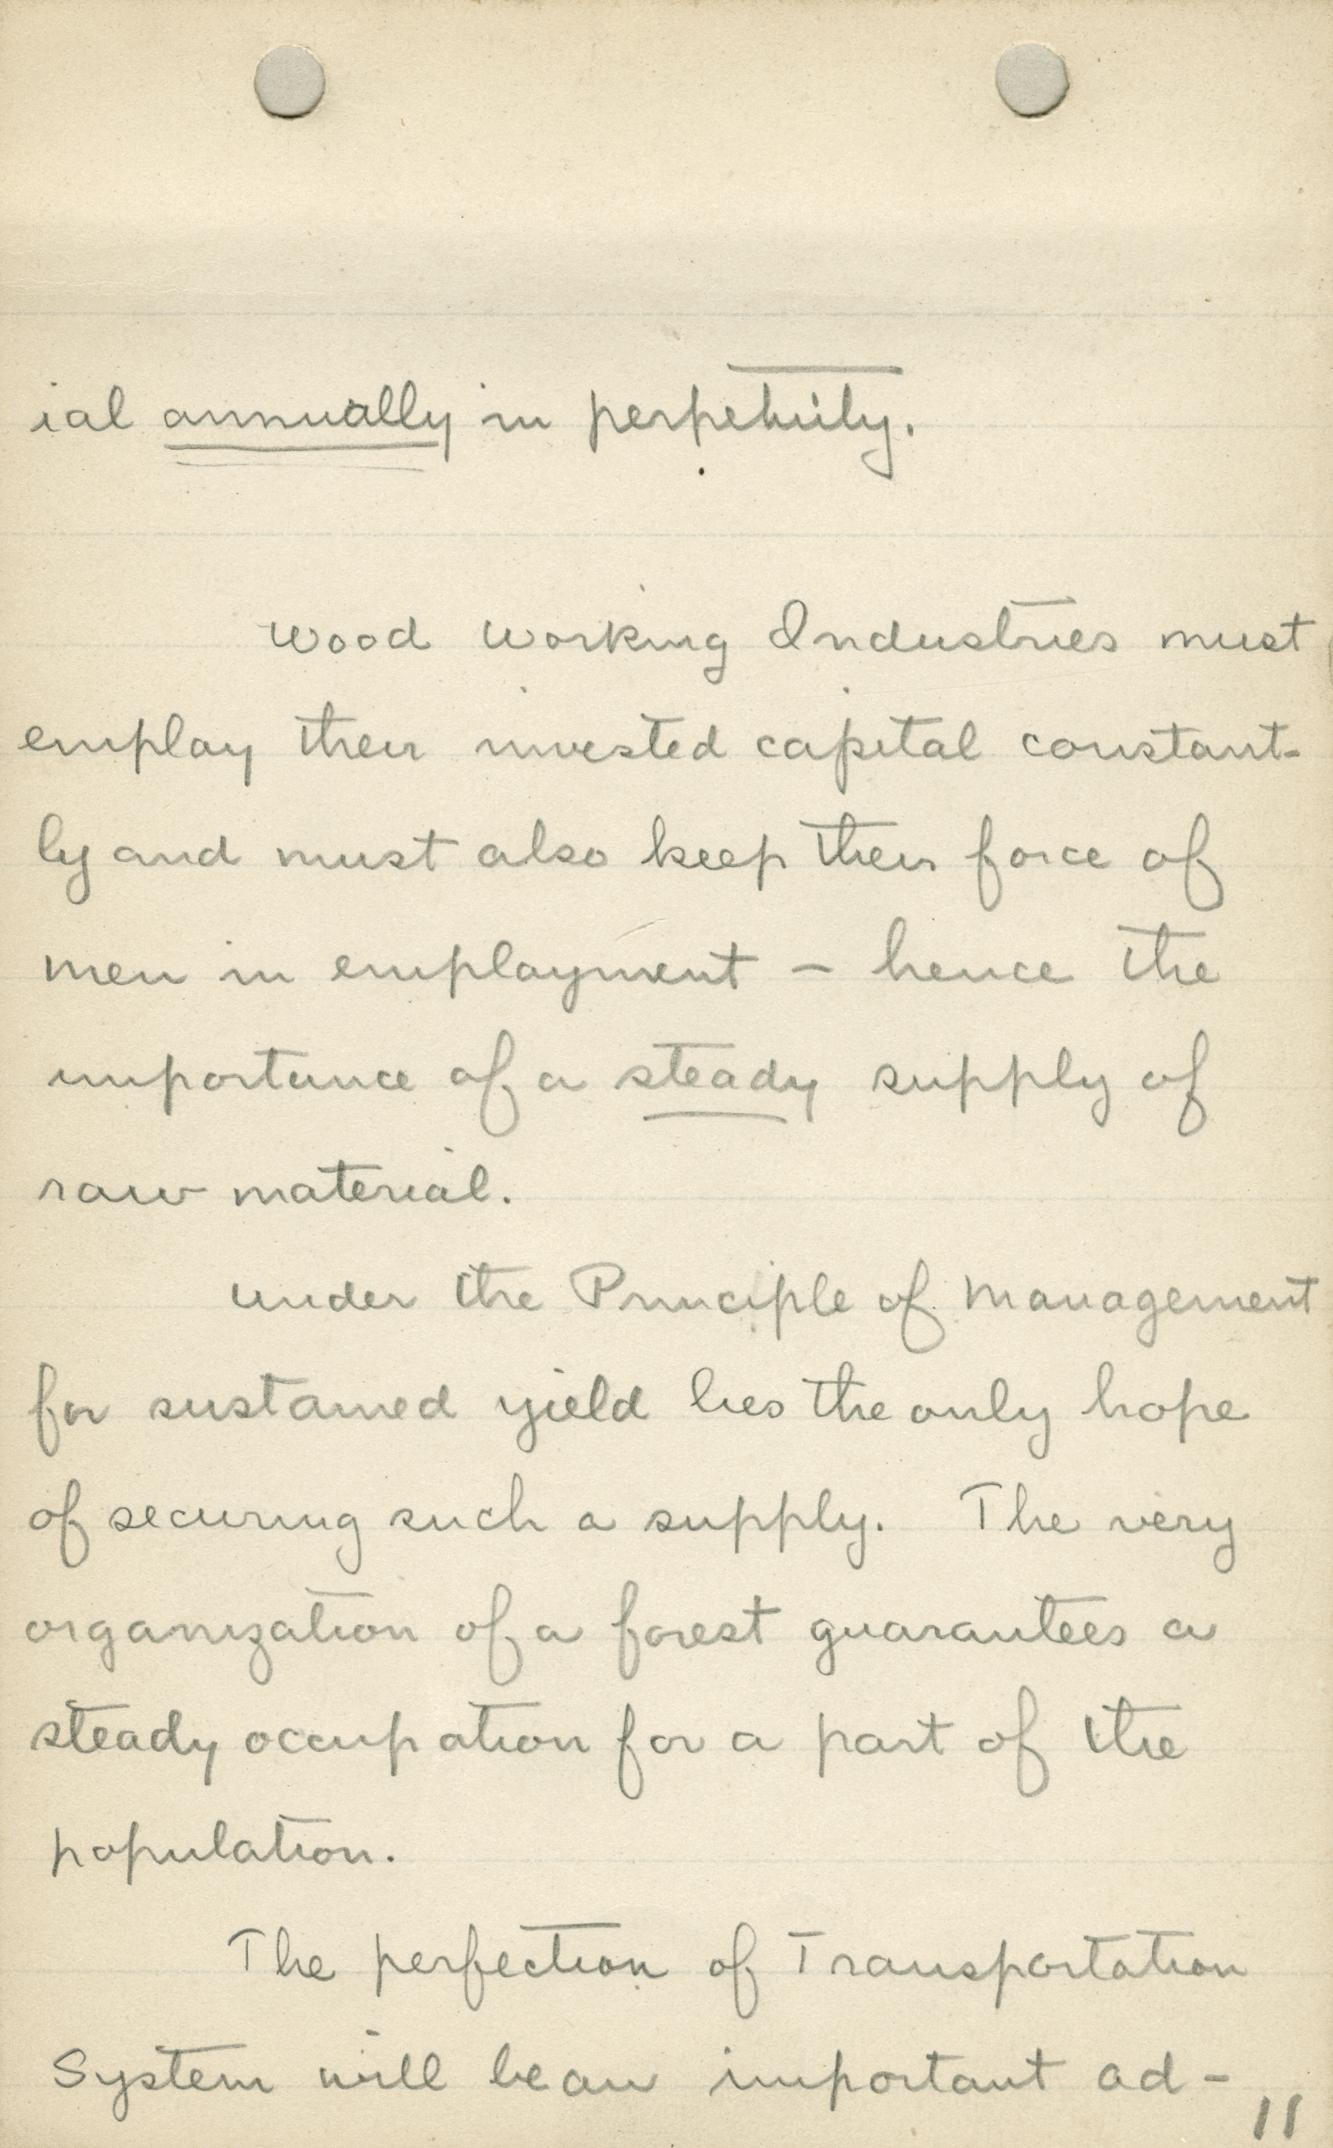 ial annually in perpetuity.
Wood Working Industries must
employ their invested capital constant-
ly and must also keep their force of
men in employment – hence the
importance of a steady supply of
raw material.
Under the Principle of Management
for sustained yield lies the only hope
of securing such a supply. The very
organization of a forest guarantees a
steady occupation for a part of the
population.
The perfection of Transportation
System will be an important ad-
11